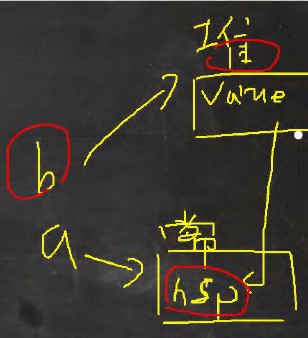 堆
value
b
a
常
hsp